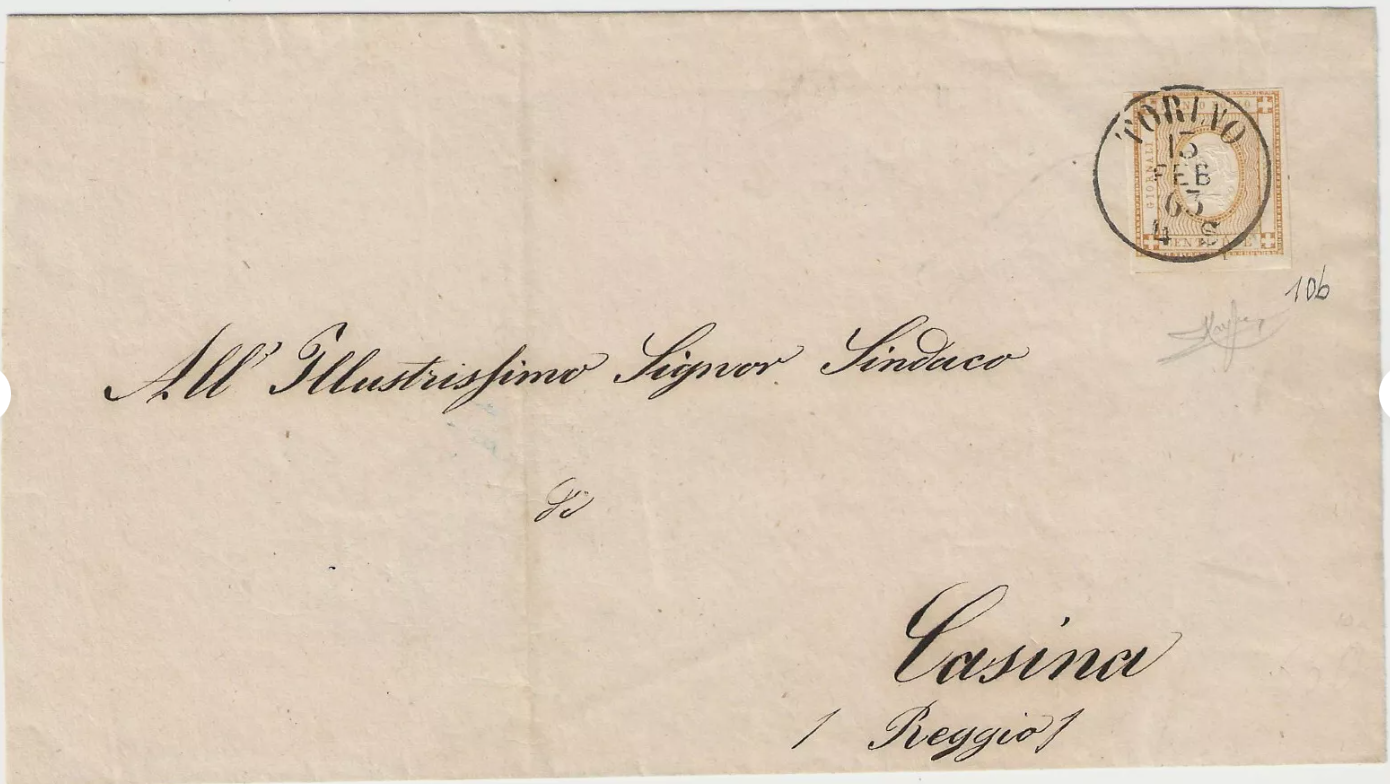 TORINO
13
FEB
63
4 S
GIORNALI
CENT
10b
All' Illustrissimo Signor Sindaco
di
Casina
/ Reggio /